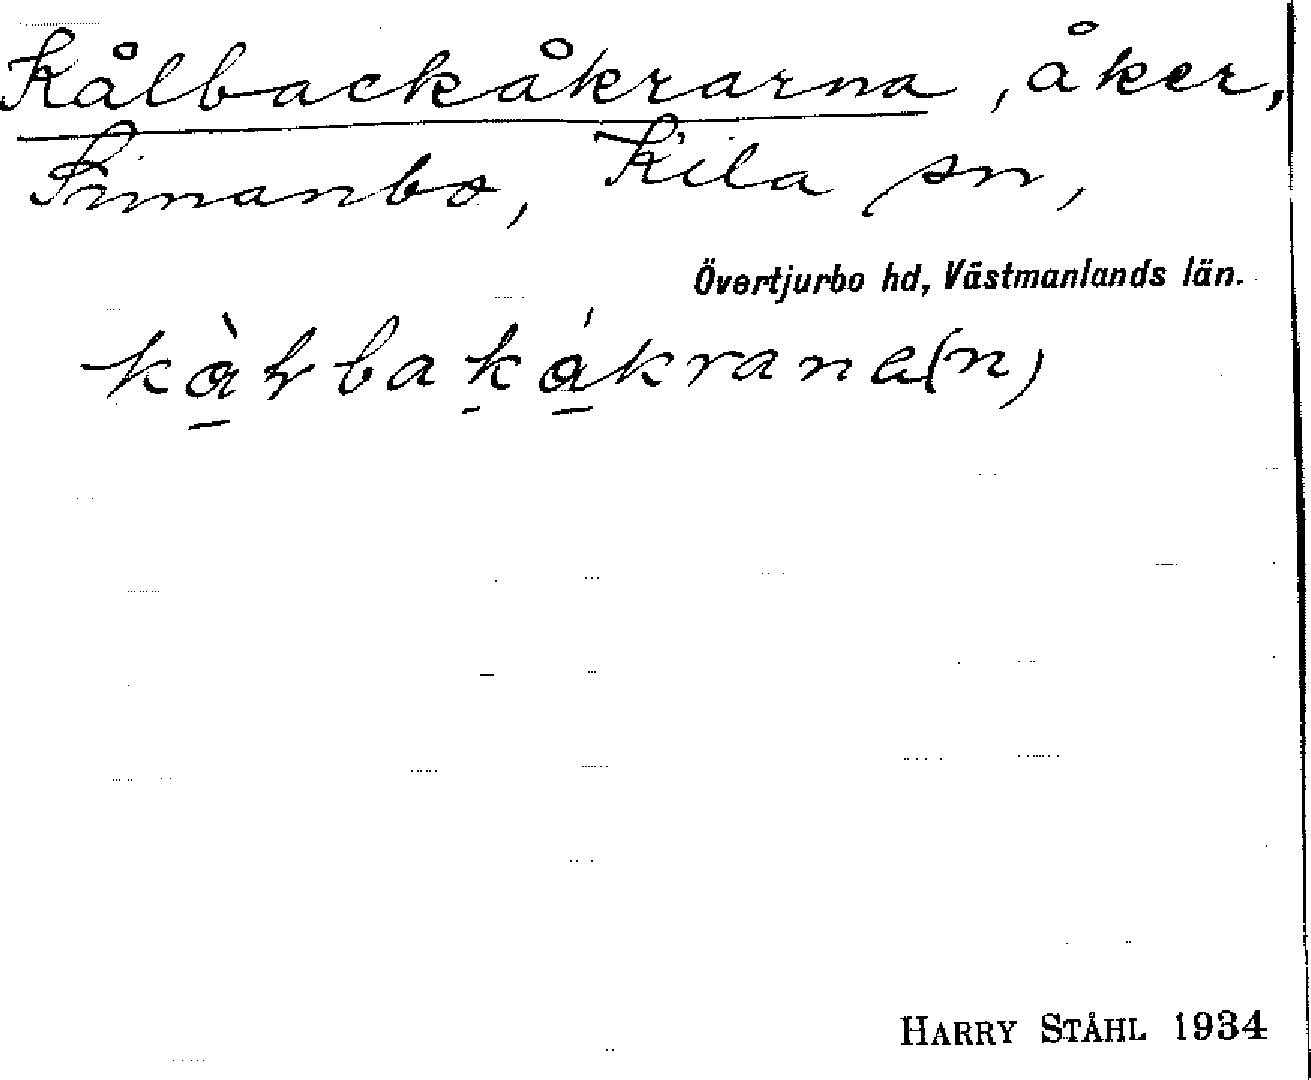 Kålbackåkrarna, åker,
Finnanbo, Kila sn,
Övertjurbo hd, Västmanlands län.
HARRY STÅHL 1934